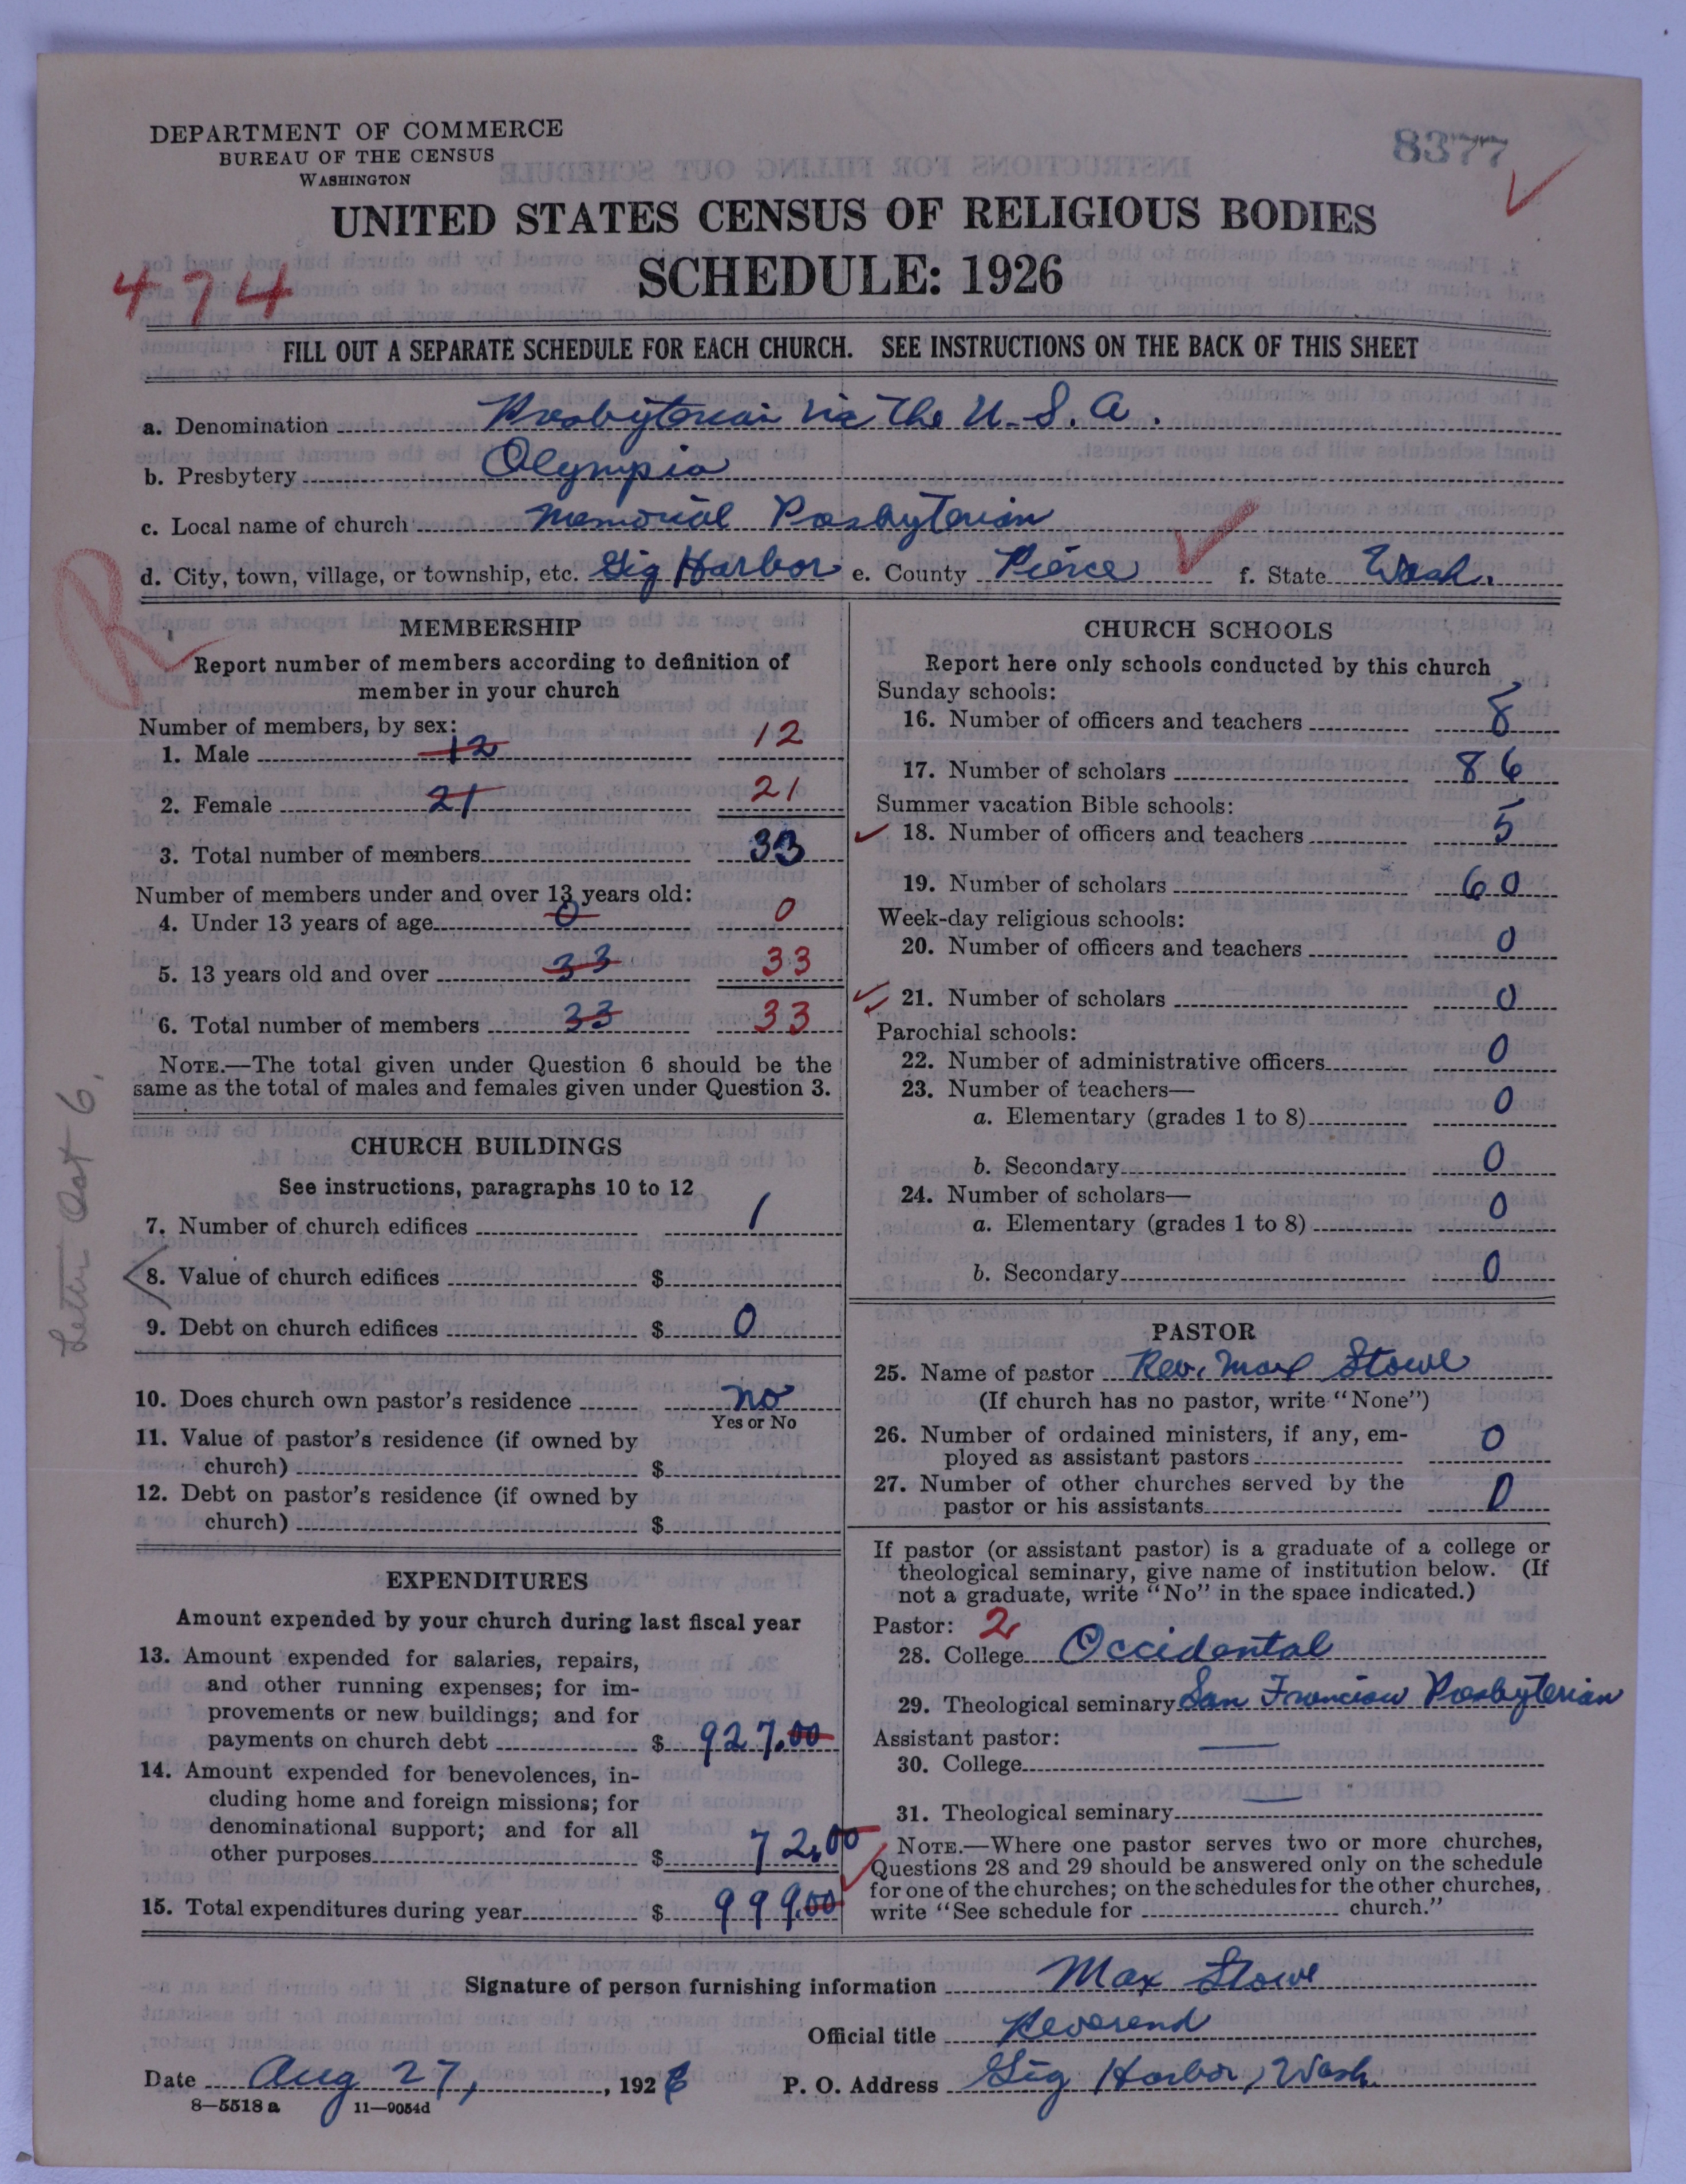 DEPARTMENT OF COMMERCE
BUREAU OF THE CENSUS
WASHINGTON
8377
UNITED STATES CENSUS OF RELIGIOUS BODIES
SCHEDULE: 1926
474
FILL OUT A SEPARATE SCHEDULE FOR EACH CHURCH. SEE INSTRUCTIONS ON THE BACK OF THIS SHEET
a. Denomination Presbyterian in The U. S. A.
b. Presbytery Olympia
c. Local name of church Memorial Presbyterian
d. City, town, village, or township, etc. Gig Harbor e. County Pierce f. State Wash.
R
MEMBERSHIP
Report number of members according to definition of
member in your church
Number of members, by sex:
1. Male 12 12
2. Female 21 21
3. Total number of members 33
Number of members under and over 13 years old:
4. Under 13 years of age 0 0
5. 13 years old and over 33 33
6. Total number of members 33 33
NOTE.—The total given under Question 6 should be the
same as the total of males and females given under Question 3.
Letter Oct 6.
CHURCH BUILDINGS
See instructions, paragraphs 10 to 12
7. Number of church edifices 1
8. Value of church edifices $
9. Debt on church edifices $ 0
10. Does church own pastor's residence no
Yes or No
11. Value of pastor's residence (if owned by
church) $
12. Debt on pastor's residence (if owned by
church) $
EXPENDITURES
Amount expended by your church during last fiscal year
13. Amount expended for salaries, repairs,
and other running expenses; for im-
provements or new buildings; and for
payments on church debt $ 927.00
14. Amount expended for benevolences, in-
cluding home and foreign missions; for
denominational support; and for all
other purposes $ 72.00
15. Total expenditures during year $ 999.00
CHURCH SCHOOLS
Report here only schools conducted by this church
Sunday schools:
16. Number of officers and teachers 8
17. Number of scholars 86
Summer vacation Bible schools:
18. Number of officers and teachers 5
19. Number of scholars 60
Week-day religious schools:
20. Number of officers and teachers 0
21. Number of scholars 0
Parochial schools:
22. Number of administrative officers 0
23. Number of teachers—
a. Elementary (grades 1 to 8) 0
b. Secondary 0
24. Number of scholars—
a. Elementary (grades 1 to 8) 0
b. Secondary 0
PASTOR
25. Name of pastor Rev. Max Stowe
(If church has no pastor, write "None")
26. Number of ordained ministers, if any, em-
ployed as assistant pastors 0
27. Number of other churches served by the
pastor or his assistants 0
If pastor (or assistant pastor) is a graduate of a college or
theological seminary, give name of institution below. (If
not a graduate, write "No" in the space indicated.)
Pastor: 2
28. College Occidental
29. Theological seminary San Francisco Presbyterian
Assistant pastor:
30. College
31. Theological seminary
NOTE.—Where one pastor serves two or more churches,
Questions 28 and 29 should be answered only on the schedule
for one of the churches; on the schedules for the other churches,
write "See schedule for church."
Signature of person furnishing information Max Stowe
Official title Reverend
Date Aug 27, 1926 P. O. Address Gig Harbor, Wash.
8—5518 a 11—9054d